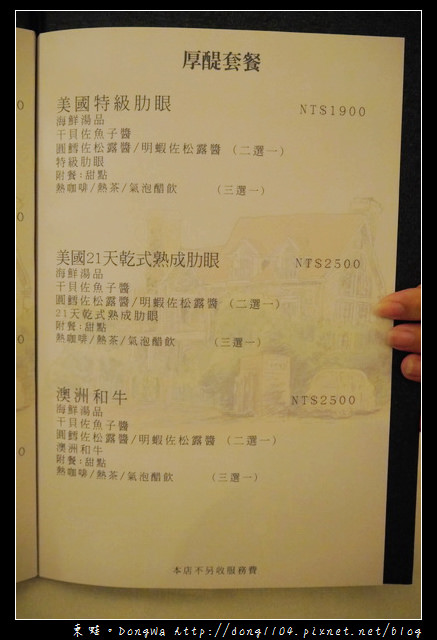 厚醍套餐
美國特級肋眼 NT$1900
海鮮湯品
干貝佐魚子醬
圓鱈佐松露醬/明蝦佐松露醬 (二選一)
特級肋眼
附餐:甜點
熱咖啡/熱茶/氣泡醋飲 (三選一)
美國21天乾式熟成肋眼 NT$2500
海鮮湯品
干貝佐魚子醬
圓鱈佐松露醬/明蝦佐松露醬 (二選一)
21天乾式熟成肋眼
附餐:甜點
熱咖啡/熱茶/氣泡醋飲 (三選一)
澳洲和牛 NT$2500
海鮮湯品
干貝佐魚子醬
圓鱈佐松露醬/明蝦佐松露醬 (二選一)
澳洲和牛
附餐:甜點
熱咖啡/熱茶/氣泡醋飲 (三選一)
本店不另收服務費
東蛙。DongWa http://dong1104.pixnet.net/blog